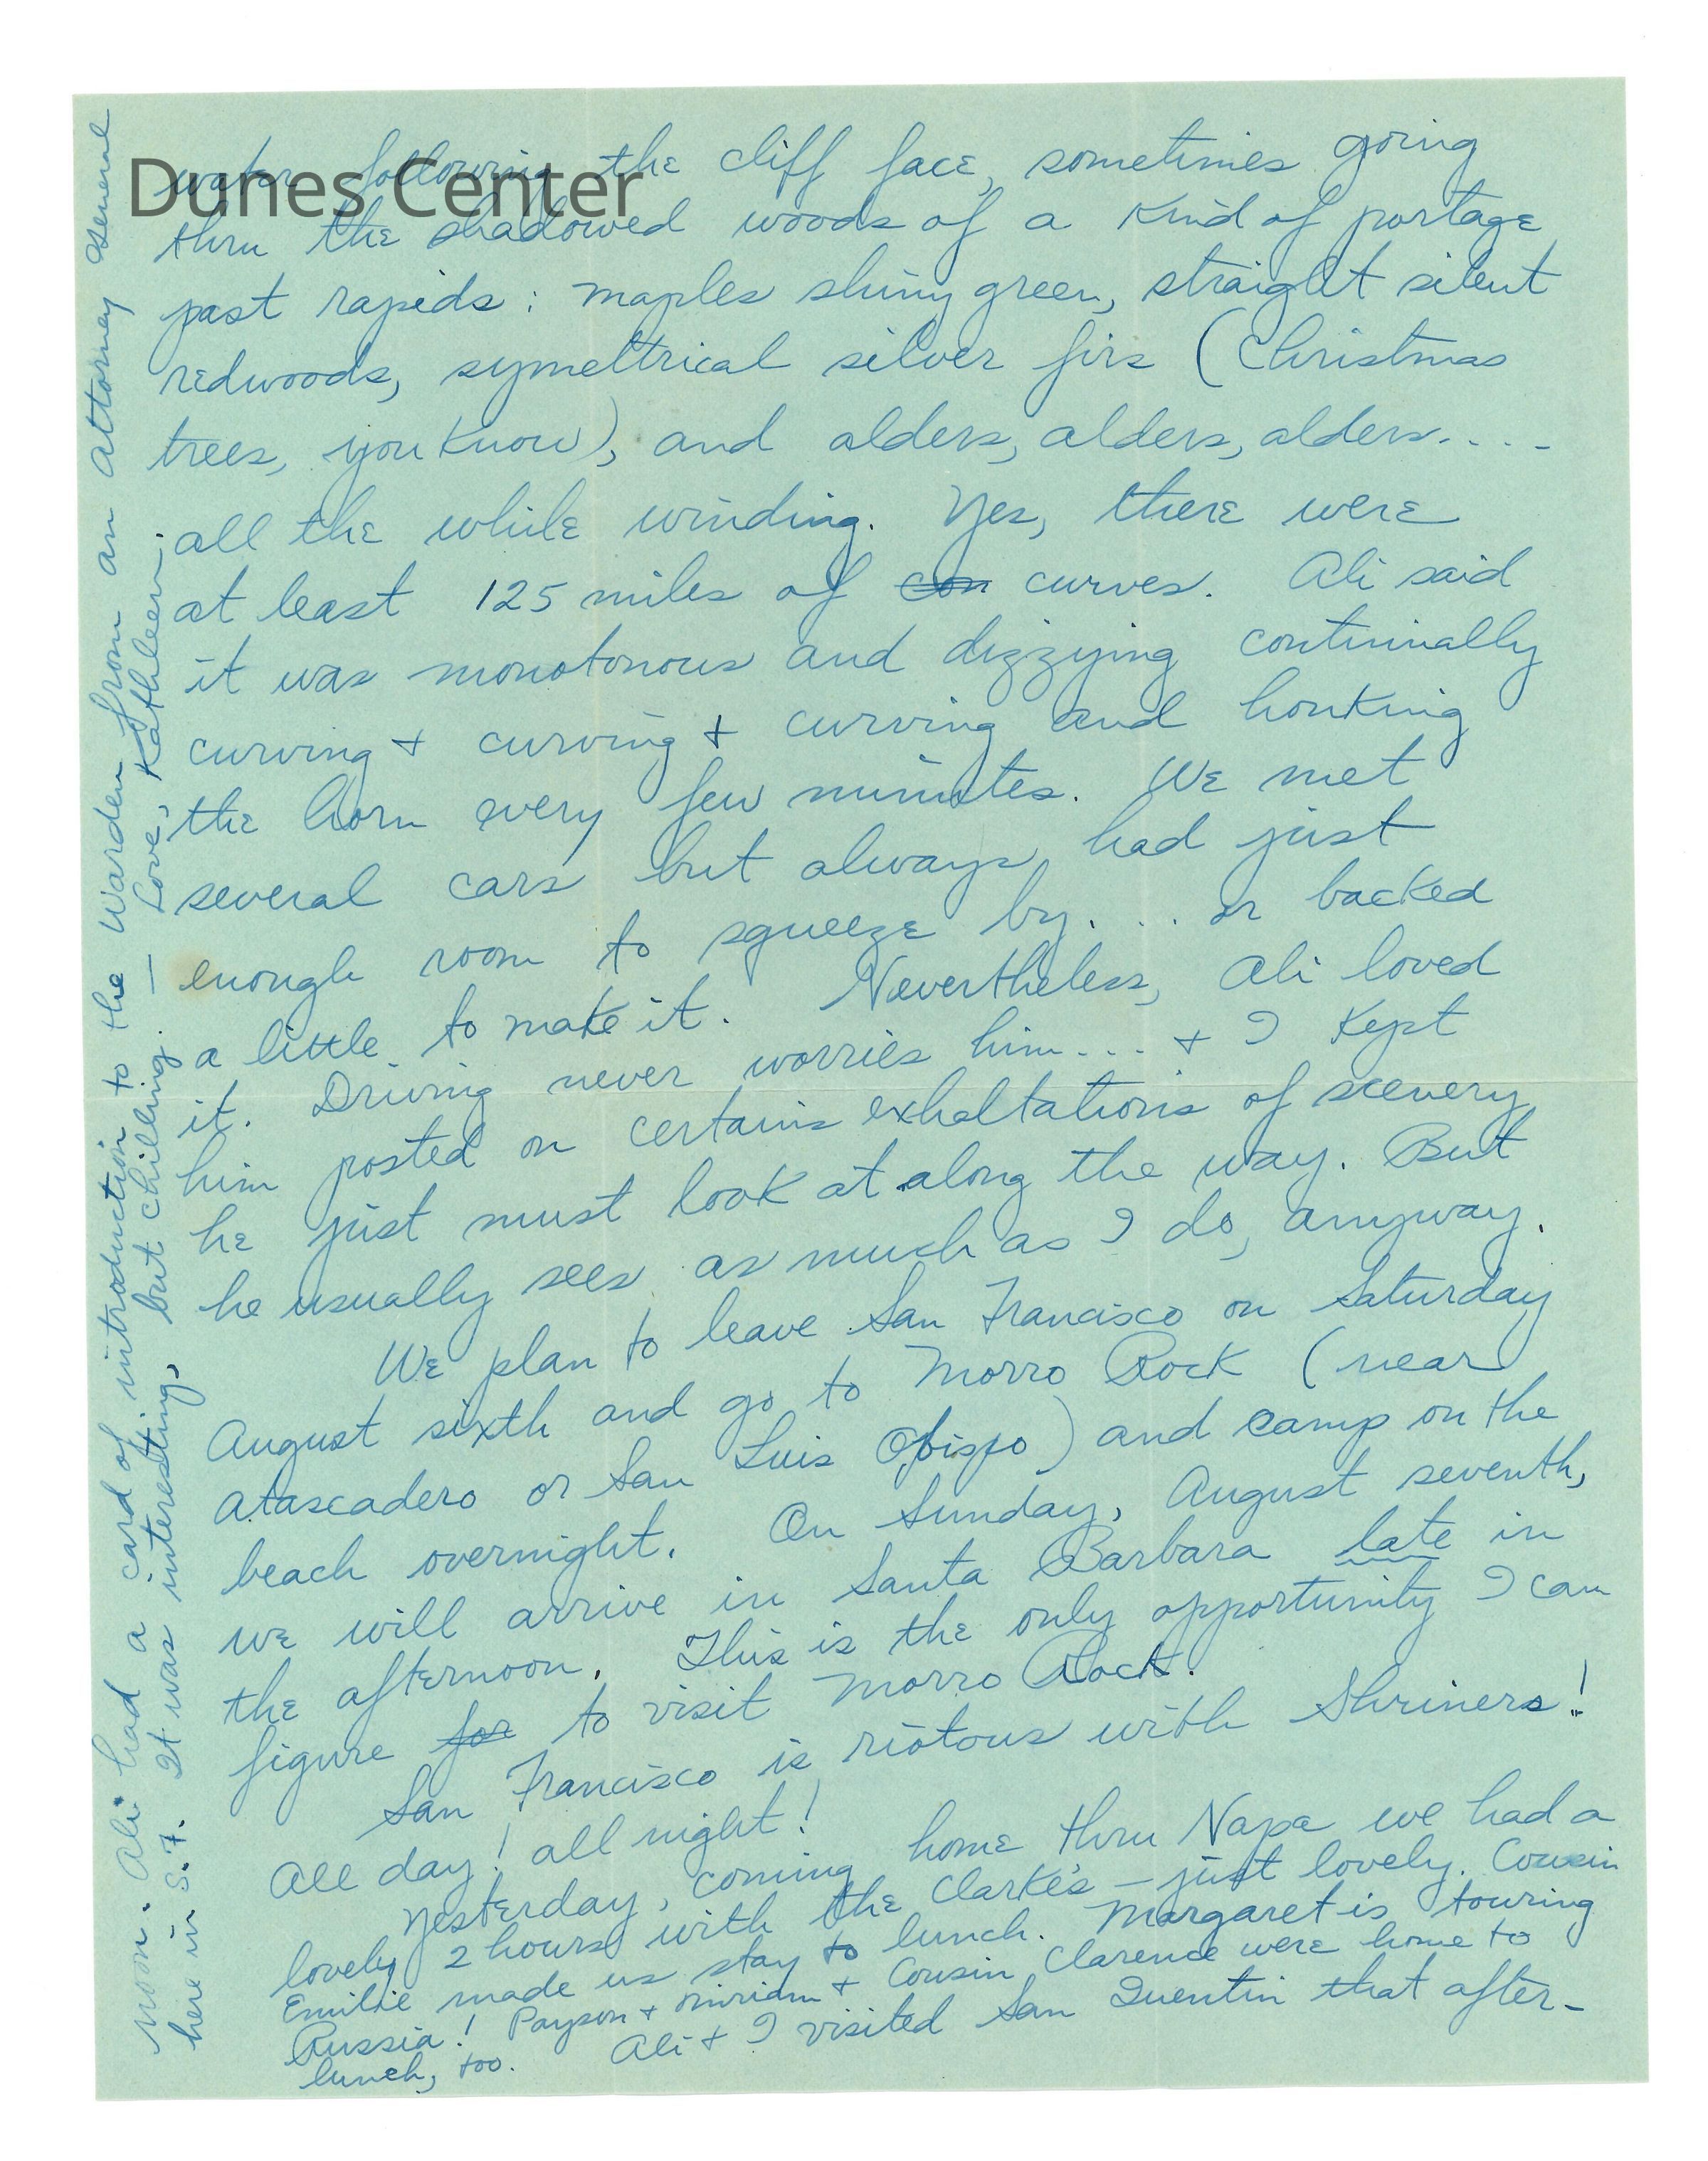 Dunes Center
water following the cliff face, sometimes going
thru the shadowed woods of a kind of portage
past rapids: maples shiny green, straight silent
redwoods, symettrical silver firs (Christmas
trees, you know), and alders, alders, alders....
all the while winding. Yes, there were
at least 125 miles of con curves. Ali said
it was monotonous and dizzying continually
curving + curving + curving and honking
the horn every few minutes. We met
several cars but always had just
enough room to squeeze by... or backed
a little to make it. Nevertheless, Ali loved
it. Driving never worries him... + I kept
him posted on certains exhaltations of scenery
he just must look at along the way. But
he usually sees as much as I do, anyway.
We plan to leave San Francisco on Saturday
August sixth and go to Morro Rock (near
Atascadero or San Luis Obispo) and camp on the
beach overnight. On Sunday, August seventh,
we will arrive in Santa Barbara late in
the afternoon. This is the only opportunity I can
figure for to visit Morro Rock.
San Francisco is riotous with Shriners!
All day! all night!
Yesterday, coming home thru Napa we had a
lovely 2 hours with the Clarke's — just lovely. Cousin
Emilie made us stay to lunch. Margaret is touring
Russia! Payson + Miriam + Cousin Clarence were home to
lunch, too. Ali + I visited San Quentin that after-
noon. Ali had a card of introduction to the Warden from an Attorney General
here in S.F. It was interesting, but chilling. — Love, Kathleen.